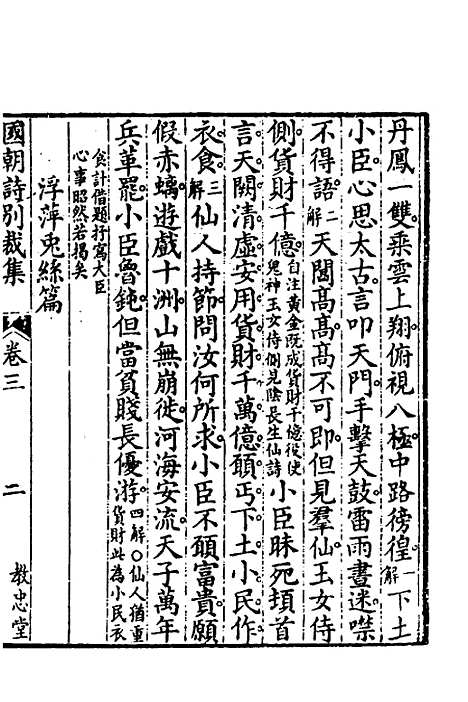 丹鳳一雙乘雲上翔俯視八極中路徬徨一解下土
小臣心思太古言叩天門手擊天鼓雷雨晝迷噤
不得語二解天閽高高高不可即但見羣仙玉女侍
側貨財千億自注黃金既成貨財千億役使鬼神玉女侍側見陰長生仙詩小臣昧死頓首
言天闕清虛安用貨財千萬億願丐下土小民作
衣食三解仙人持節問汝何所求小臣不願富貴願
假赤螭遊戲十洲山無崩徙河海安流天子萬年
兵革罷小臣魯鈍但當貧賤長優游四解○仙人猶重貨財此為小民衣
食計借題抒寫大臣心事昭然若揭矣
浮萍兎絲篇
國朝詩別裁集 卷三 二 教忠堂